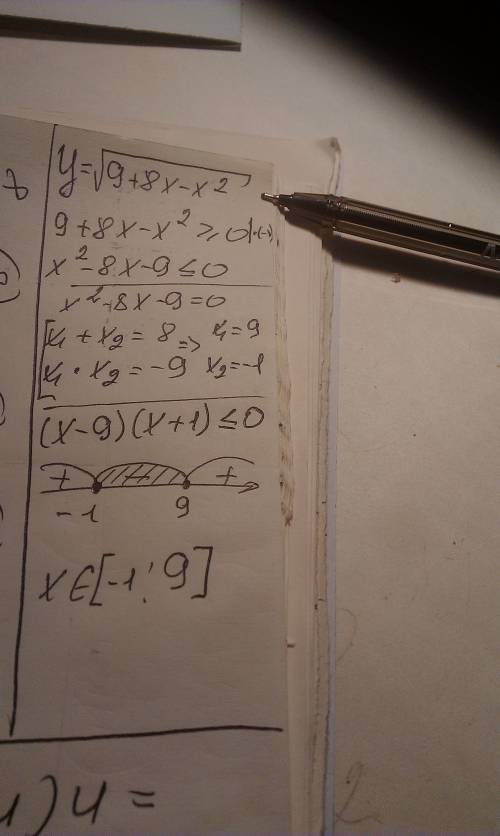 y=√9+8x-x²
9+8x-x²≥0|·(-1)
x²-8x-9≤0
x²-8x-9=0
[x₁+x₂=8 => x₁=9
x₁·x₂=-9 x₂=-1
(x-9)(x+1)≤0
+ +
-1 9
x∈[-1;9]